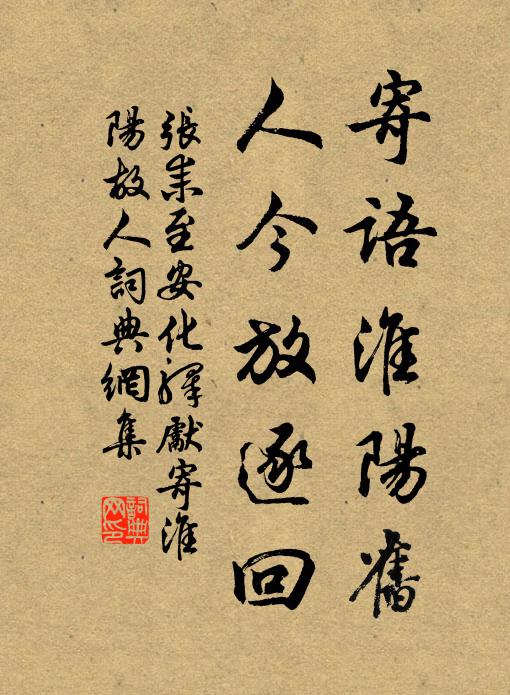 寄語淮陽舊
人今放逐回
張耒至安化驛獻寄淮
陽故人詞典網集
詞典
网印